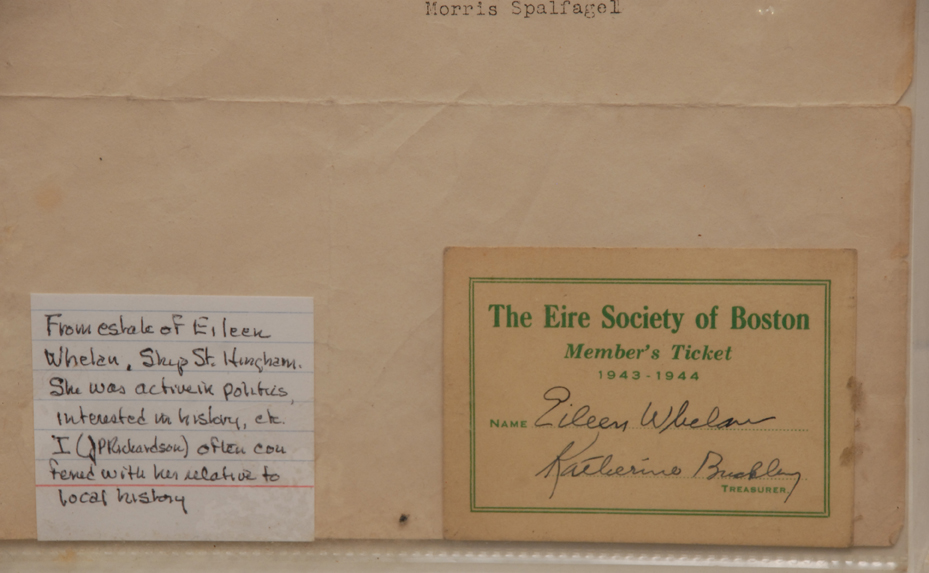 Morris Spalfagel
From estate of Eileen
Whelan, Ship St. Hingham.
She was active in politics,
interested in history, etc.
I (JPRichardson) often con
ferred with her relative to
local history
The Eire Society of Boston
Member's Ticket
1943-1944
NAME Eileen Whelan
Katherine Buckley
TREASURER